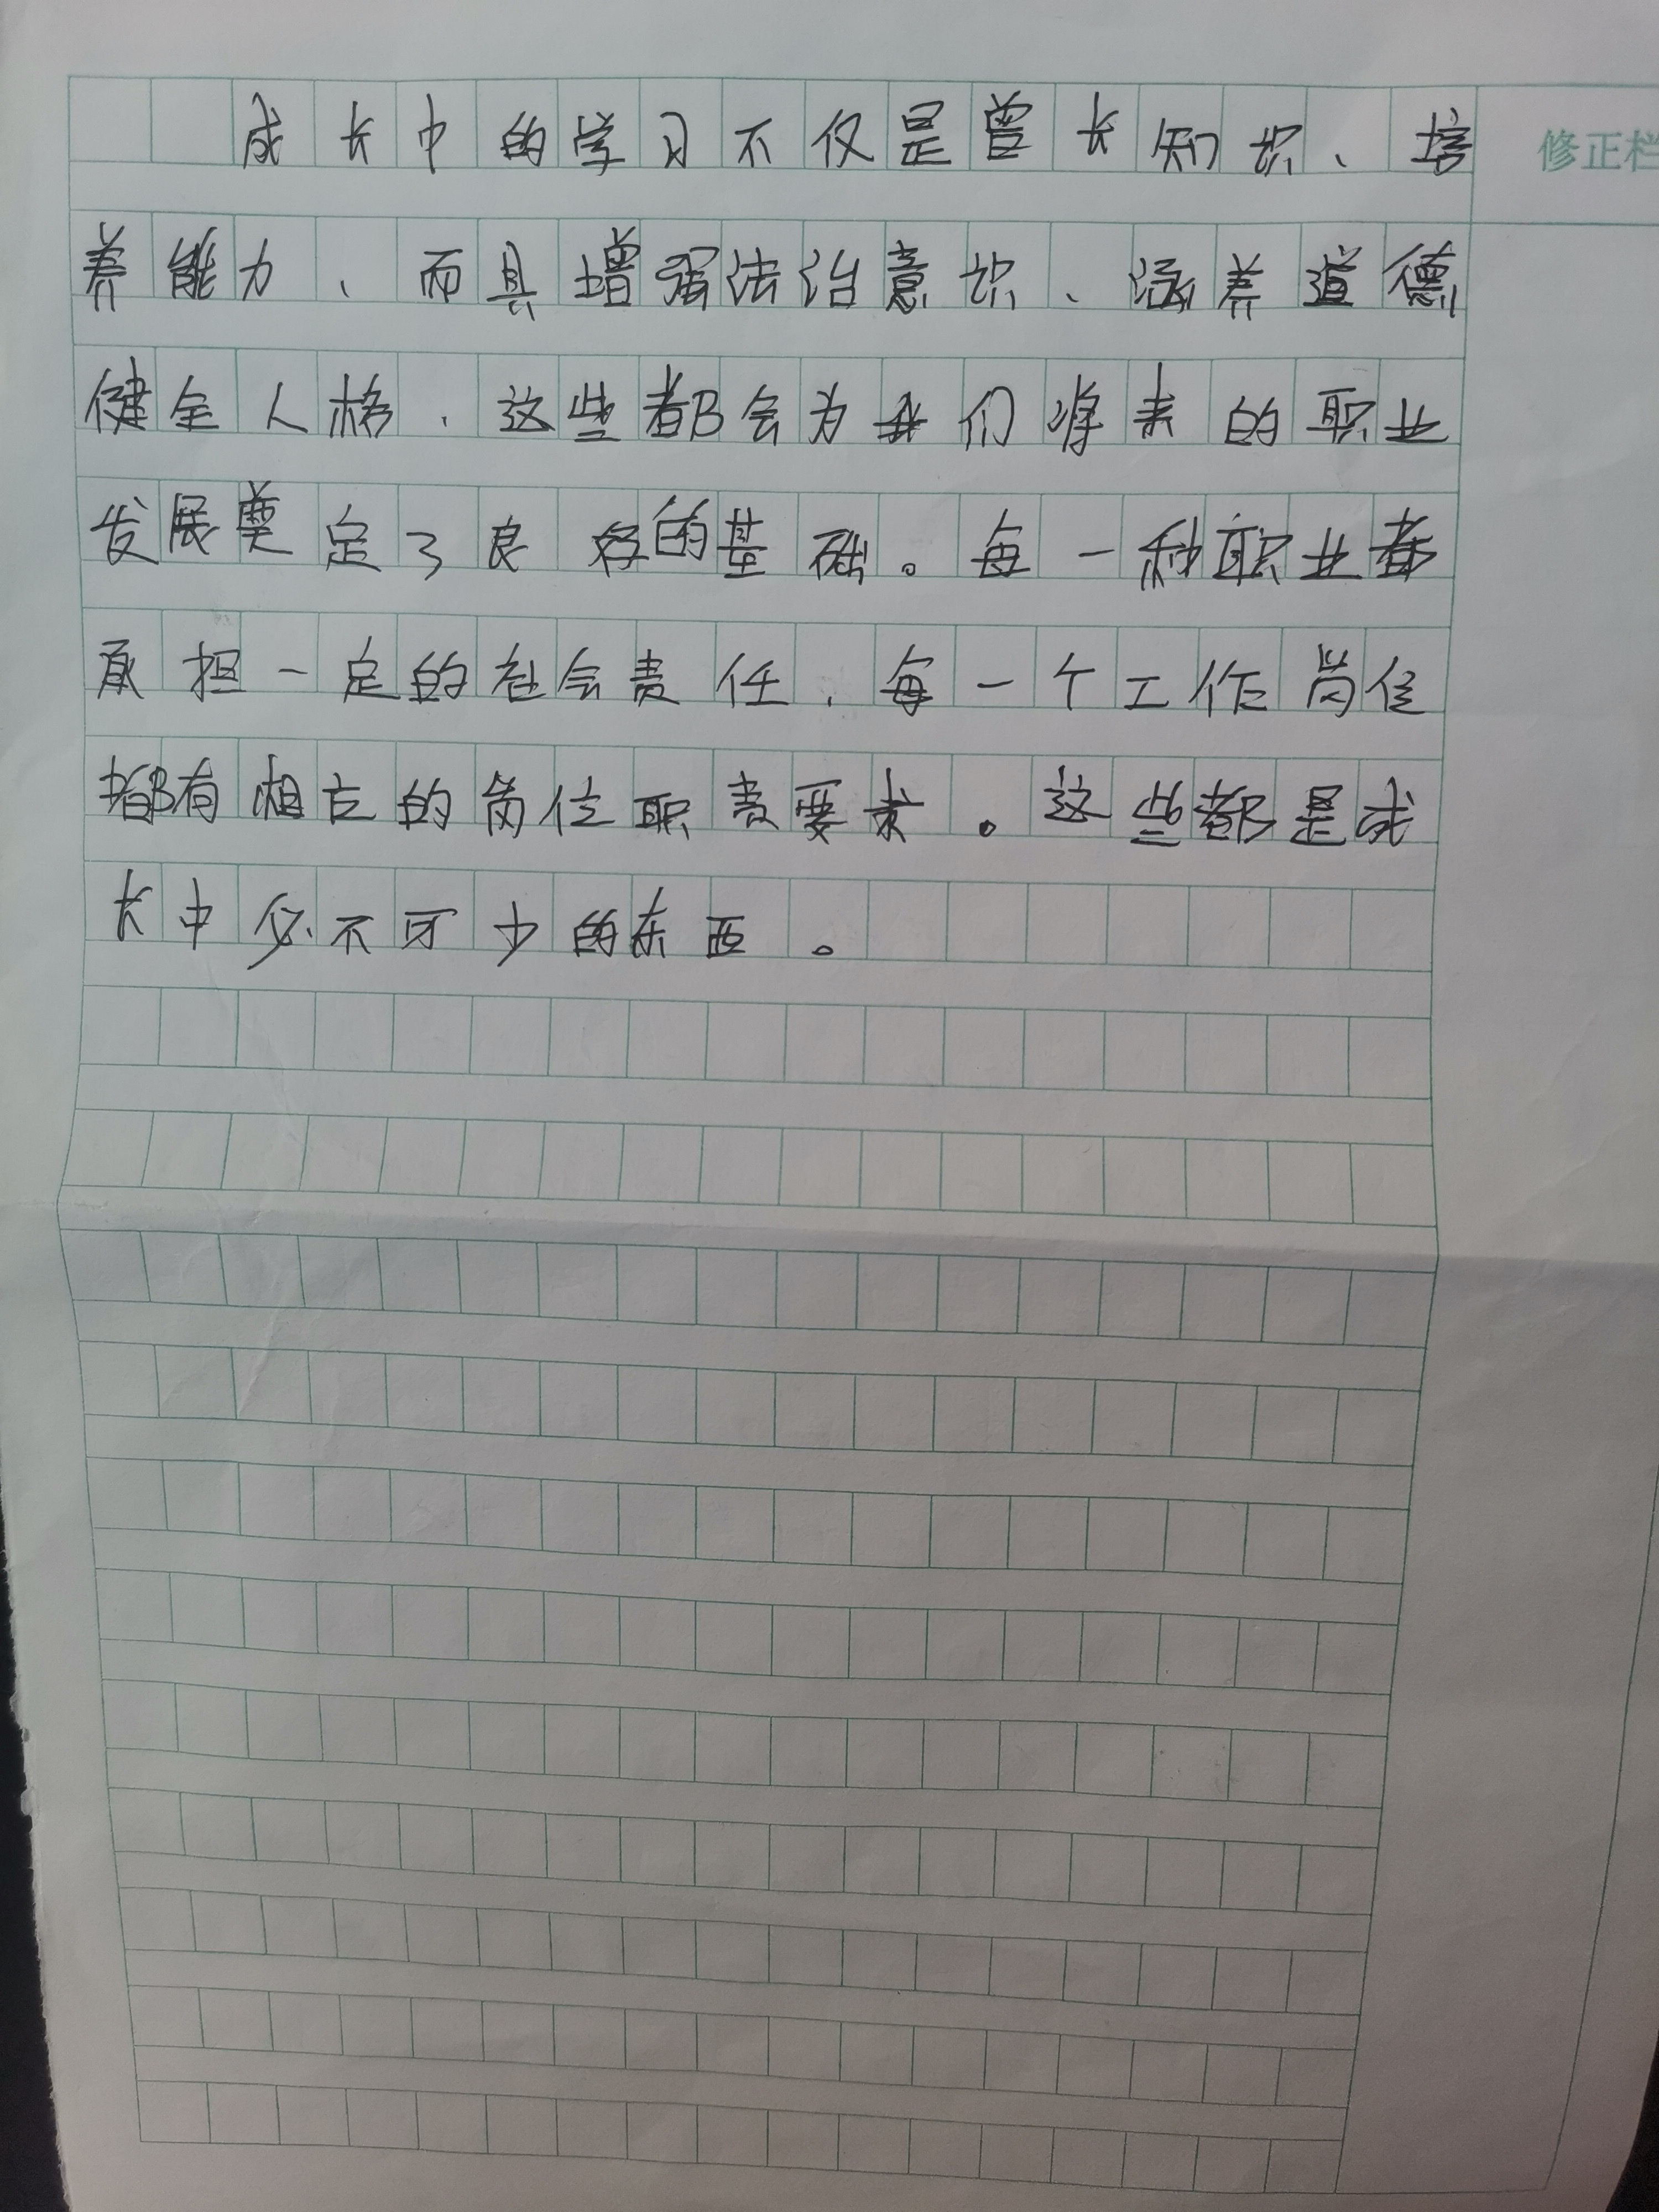 成长中的学习不仅是曾长知识、培
修正栏
养能力、而具增强法治意识、涵养道德
健全人格、这些都会为我们将来的职业
发展奠定了良好的基础。每一种职业都
承担一定的社会责任、每一个工作岗位
都有相应的岗位职责要求。这些都是成
长中必不可少的东西。